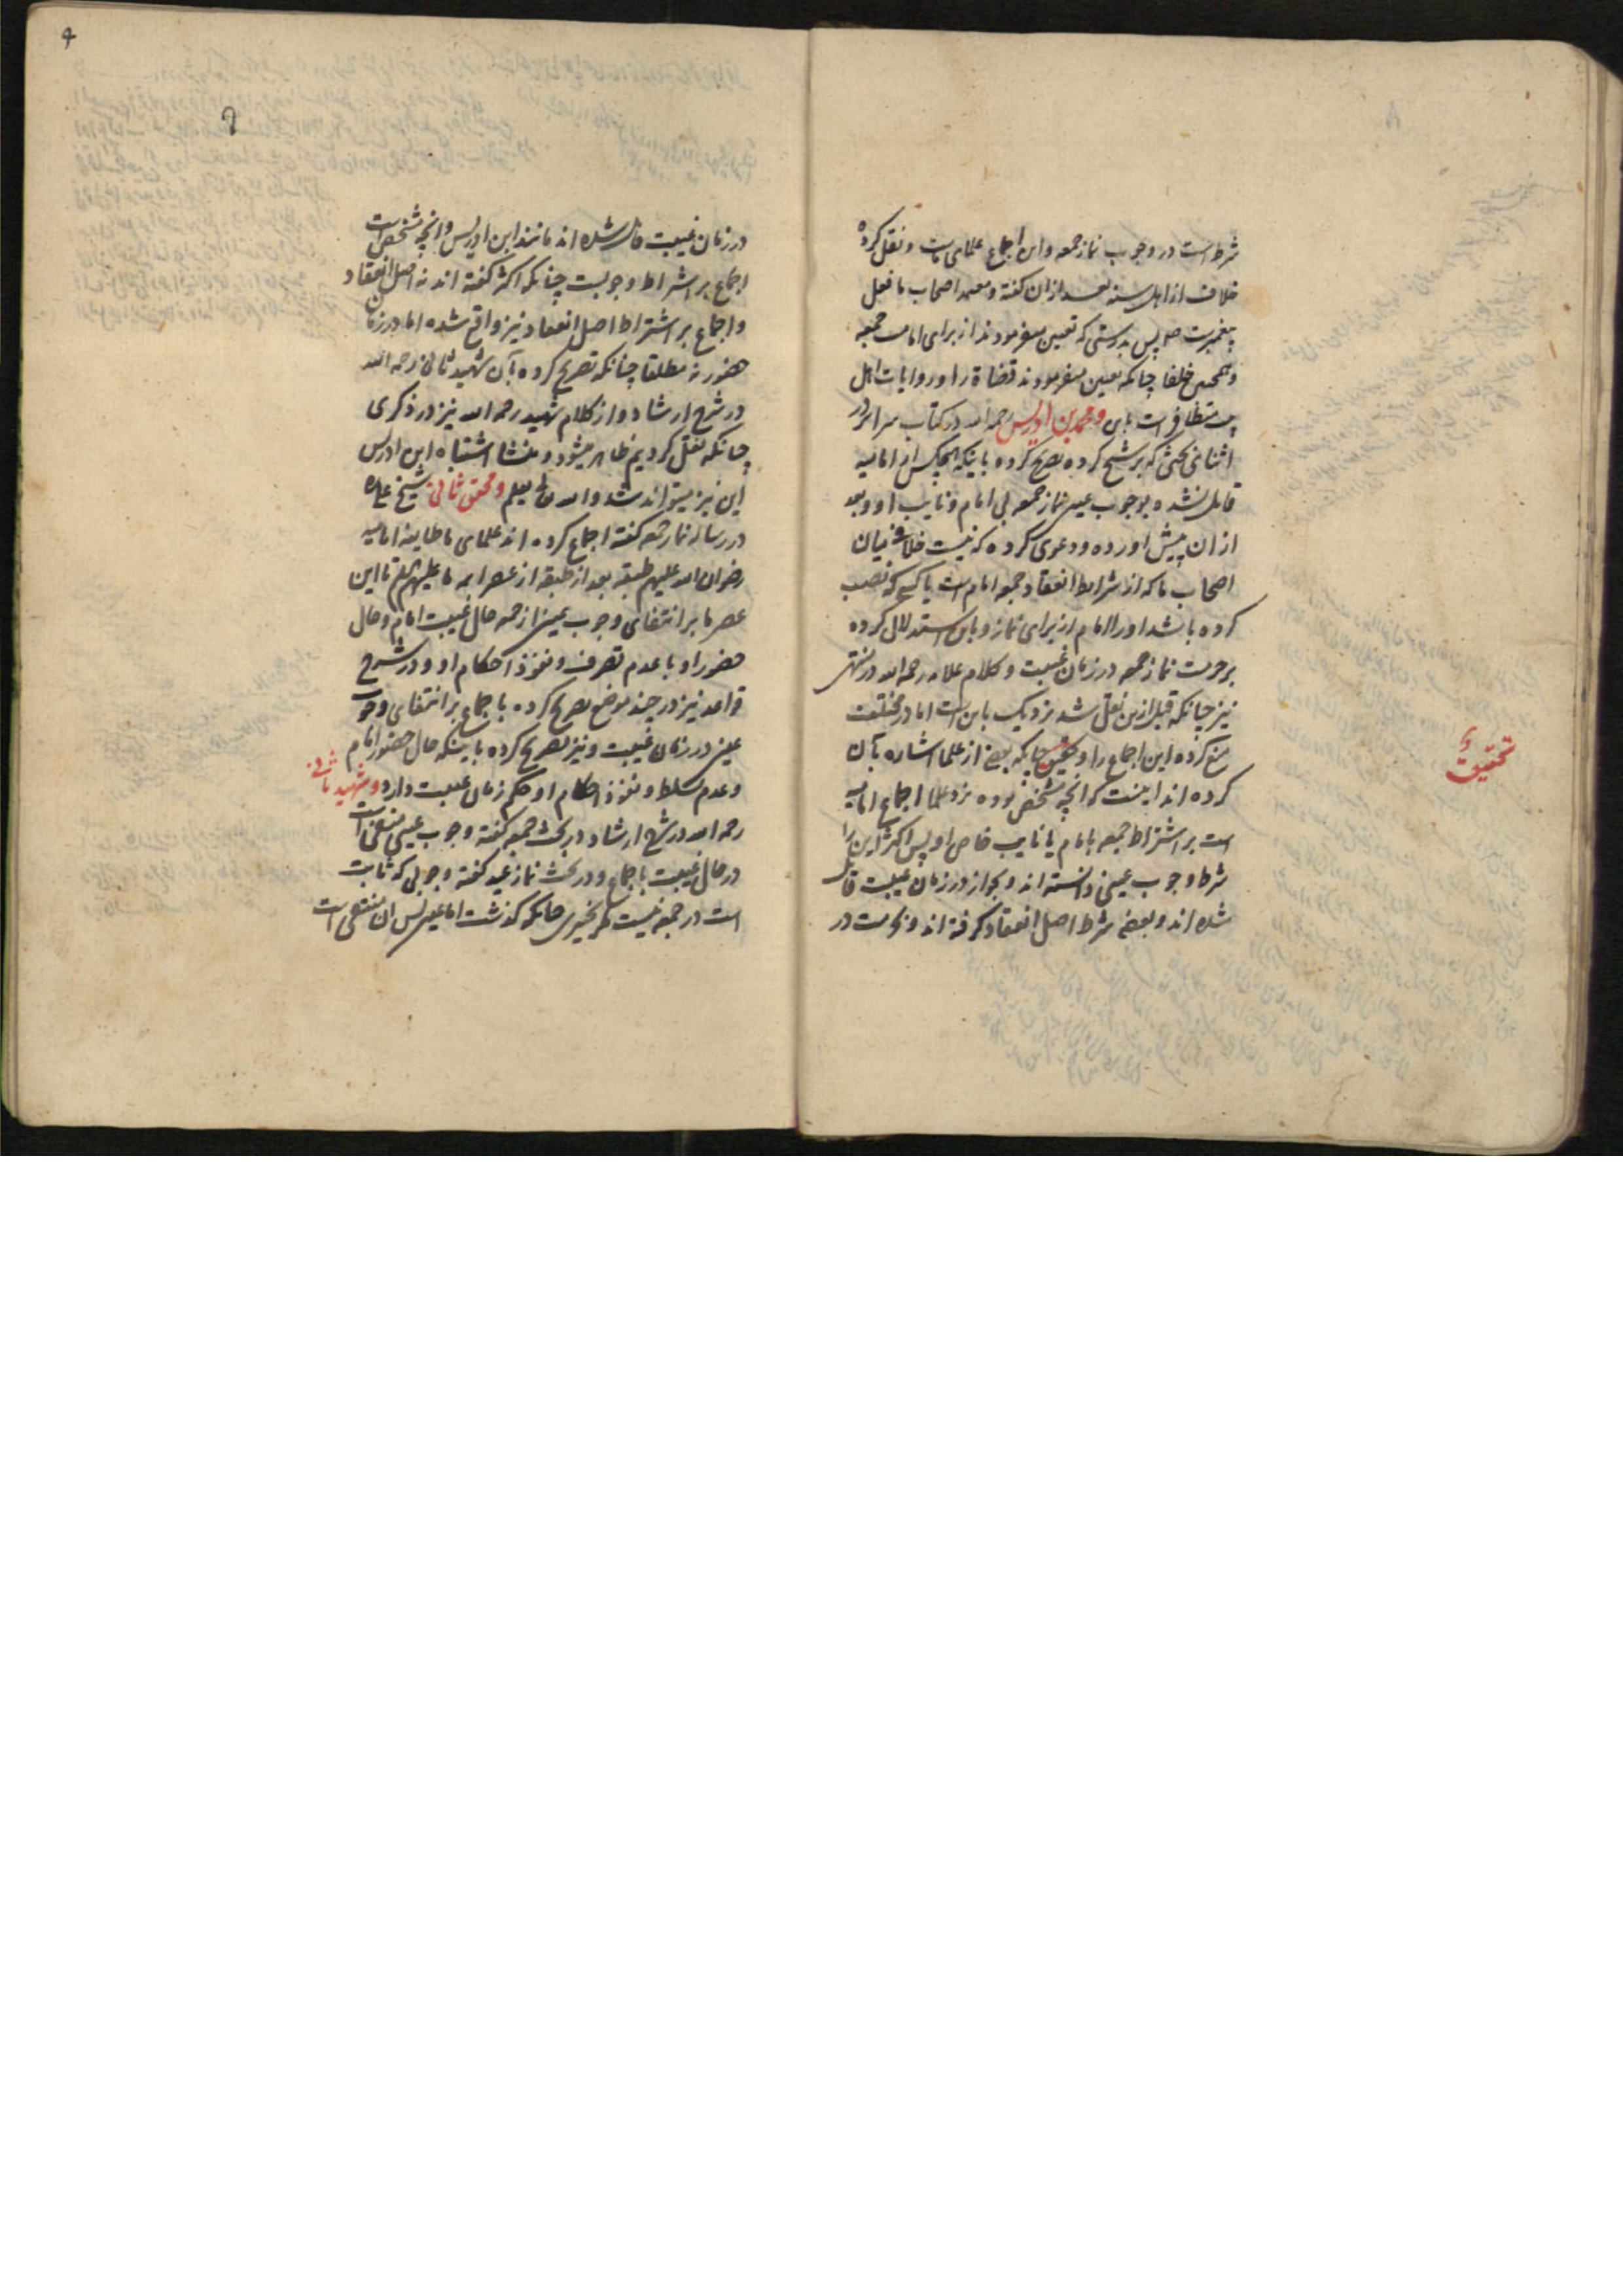 شرط است در وجوب نماز جمعه و این اجماع علمای ماست و نقل کرده
خلاف از اهل سنه بعد از ان گفته و معتمد اصحاب ما فعل
پیغمبرست صم پس بدرستی که تعیین میفرمودند از برای امامت جمعه
و همچنین خلفا چنانکه تعیین میفرمودند قضاة را و روایات اهل
بیت متظافر است باین و محمد بن ادریس رحمه الله در کتاب سرایر در
اثنای بحثی که بر شیخ کرده تصریح کرده باینکه هیچکس از امامیه
قایل نشده بوجوب عینی نماز جمعه بی امام و نایب او و بعد
از ان پیش اورده و دعوی کرده که نیست خلافی میان
اصحاب ما که از شرایط انعقاد جمعه امام است یا کسی که نصب
کرده باشد او را امام از برای نماز و باین استدلال کرده
بر حرمت نماز جمعه در زمان غیبت و کلام علامه رحمه الله در منتهی
نیز چنانکه قبل ازین نقل شد نزدیک باین است اما در مختلف
منع کرده این اجماع را و تحقیق چنانکه بعضی از علما اشاره بآن
کرده اند اینست که آنچه مشخص بوده نزد علما اجماع امامیه
است بر اشتراط جمعه بامام یا نایب خاص او پس اکثر این را
شرط وجوب عینی دانسته اند و بجواز در زمان غیبت قایل
شده اند و بعضی شرط اصل انعقاد گرفته اند و بحرمت در
تحقیق
۹
در زمان غیبت قایل شده اند مانند ابن ادریس و انچه مشخص است
اجماع بر اشتراط وجوبست چنانکه اکثر گفته اند نه اصل انعقاد
و اجماع بر اشتراط اصل انعقاد نیز واقع شده اما در زمان
حضور نه مطلقا چنانکه تصریح کرده بآن شهید ثانی رحمه الله
در شرح ارشاد و از کلام شهید رحمه الله نیز در ذکری
چنانکه نقل کردیم ظاهر میشود و منشا اشتباه ابن ادریس
این نیز میتواند شد والله تع یعلم و محقق ثانی شیخ علی ره
در رساله نماز جمعه گفته اجماع کرده اند علمای ما طایفه امامیه
رضوان الله علیهم طبقه بعد از طبقه از عصر ایمه ما علیهم السلام تا این
عصر ما بر انتفای وجوب عینی از جمعه حال غیبت امام و حال
حضور او با عدم تصرف و نفوذ احکام او و در شرح
قواعد نیز در چند موضع تصریح کرده باجماع بر انتفای وجوب
عینی در زمان غیبت و نیز تصریح کرده باینکه حال حضور امام
و عدم تسلط و نفوذ احکام او حکم زمان غیبت دارد و شهید ثانی
رحمه الله در شرح ارشاد در بحث جمعه گفته وجوب عینی منتفی است
در حال غیبت باجماع و در بحث نماز عید گفته وجوبی که ثابت
است در جمعه نیست مگر تخییری چنانکه گذشت اما عینی پس ان منتفی است